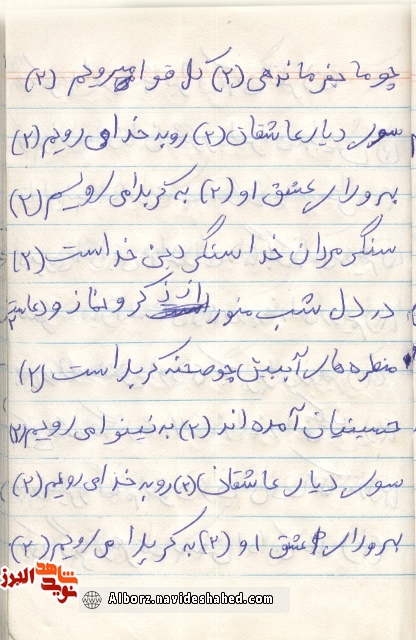 چو ما بفرماندهی (۲) کل قوا میرویم (۲)
سوی دیار عاشقان (۲) رو به خدا می رویم (۲)
بهر ولای عشق او (۲) به کربلا می رویم (۲)
سنگر مردان خدا سنگر دین خداست (۲)
در دل شب منور از ذکر و نماز و دعاست
منظره های آتیش چو صحنه کربلاست (۲)
حسینیان آمده اند (۲) به نینوا می رویم (۲)
سوی دیار عاشقان (۲) رو به خدا می رویم (۲)
بهر ولای عشق او (۲) به کربلا می رویم (۲)
نوید شاهد البرز
Alborz.navideshahed.com